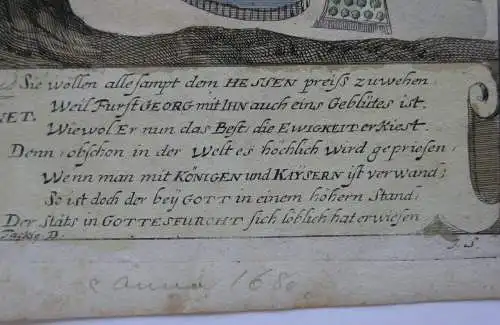 Sie wollen alle sampt dem HESSEN preiss zuwehen
Weil Furst GEORG mit IHN auch eins Geblüdes ist.
NET.
Wiewol Er nun das Best, die EWIGKEIT erkiest.
Denn obschon in der Welt es höchlich wird gepriesen
Wenn man mit KÖNIGEN und KAYSERN ist verwand;
So ist doch der beÿ GOTT in einem höhern Stand,
Der stäts in GOTTESFURCHT sich löblich hat erwiesen
Tackje. D.
J. S.
anno 168